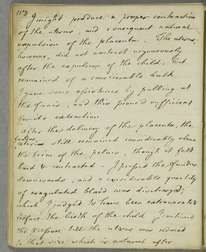 might produce a proper contraction
of the uterus, and consequent natural
expulsion of the placenta. The uterus,
however, did not contract vigorously
after the expulsion of the child, but
remained of a considerable bulk.
I gave some assistance by pulling at
the funis, and this proved sufficient
for its extraction.
After the delivery of the placenta, the
uterus still remained considerably above
the brim of the pelvis, though it felt
hard & contracted. I pressed the fundus
downwards, and a considerable quantity
of coagulated blood was discharged;
which I judged to have been extravasated
before the birth of the child. I continued
the pressure till the uterus was reduced
to that size which is natural after